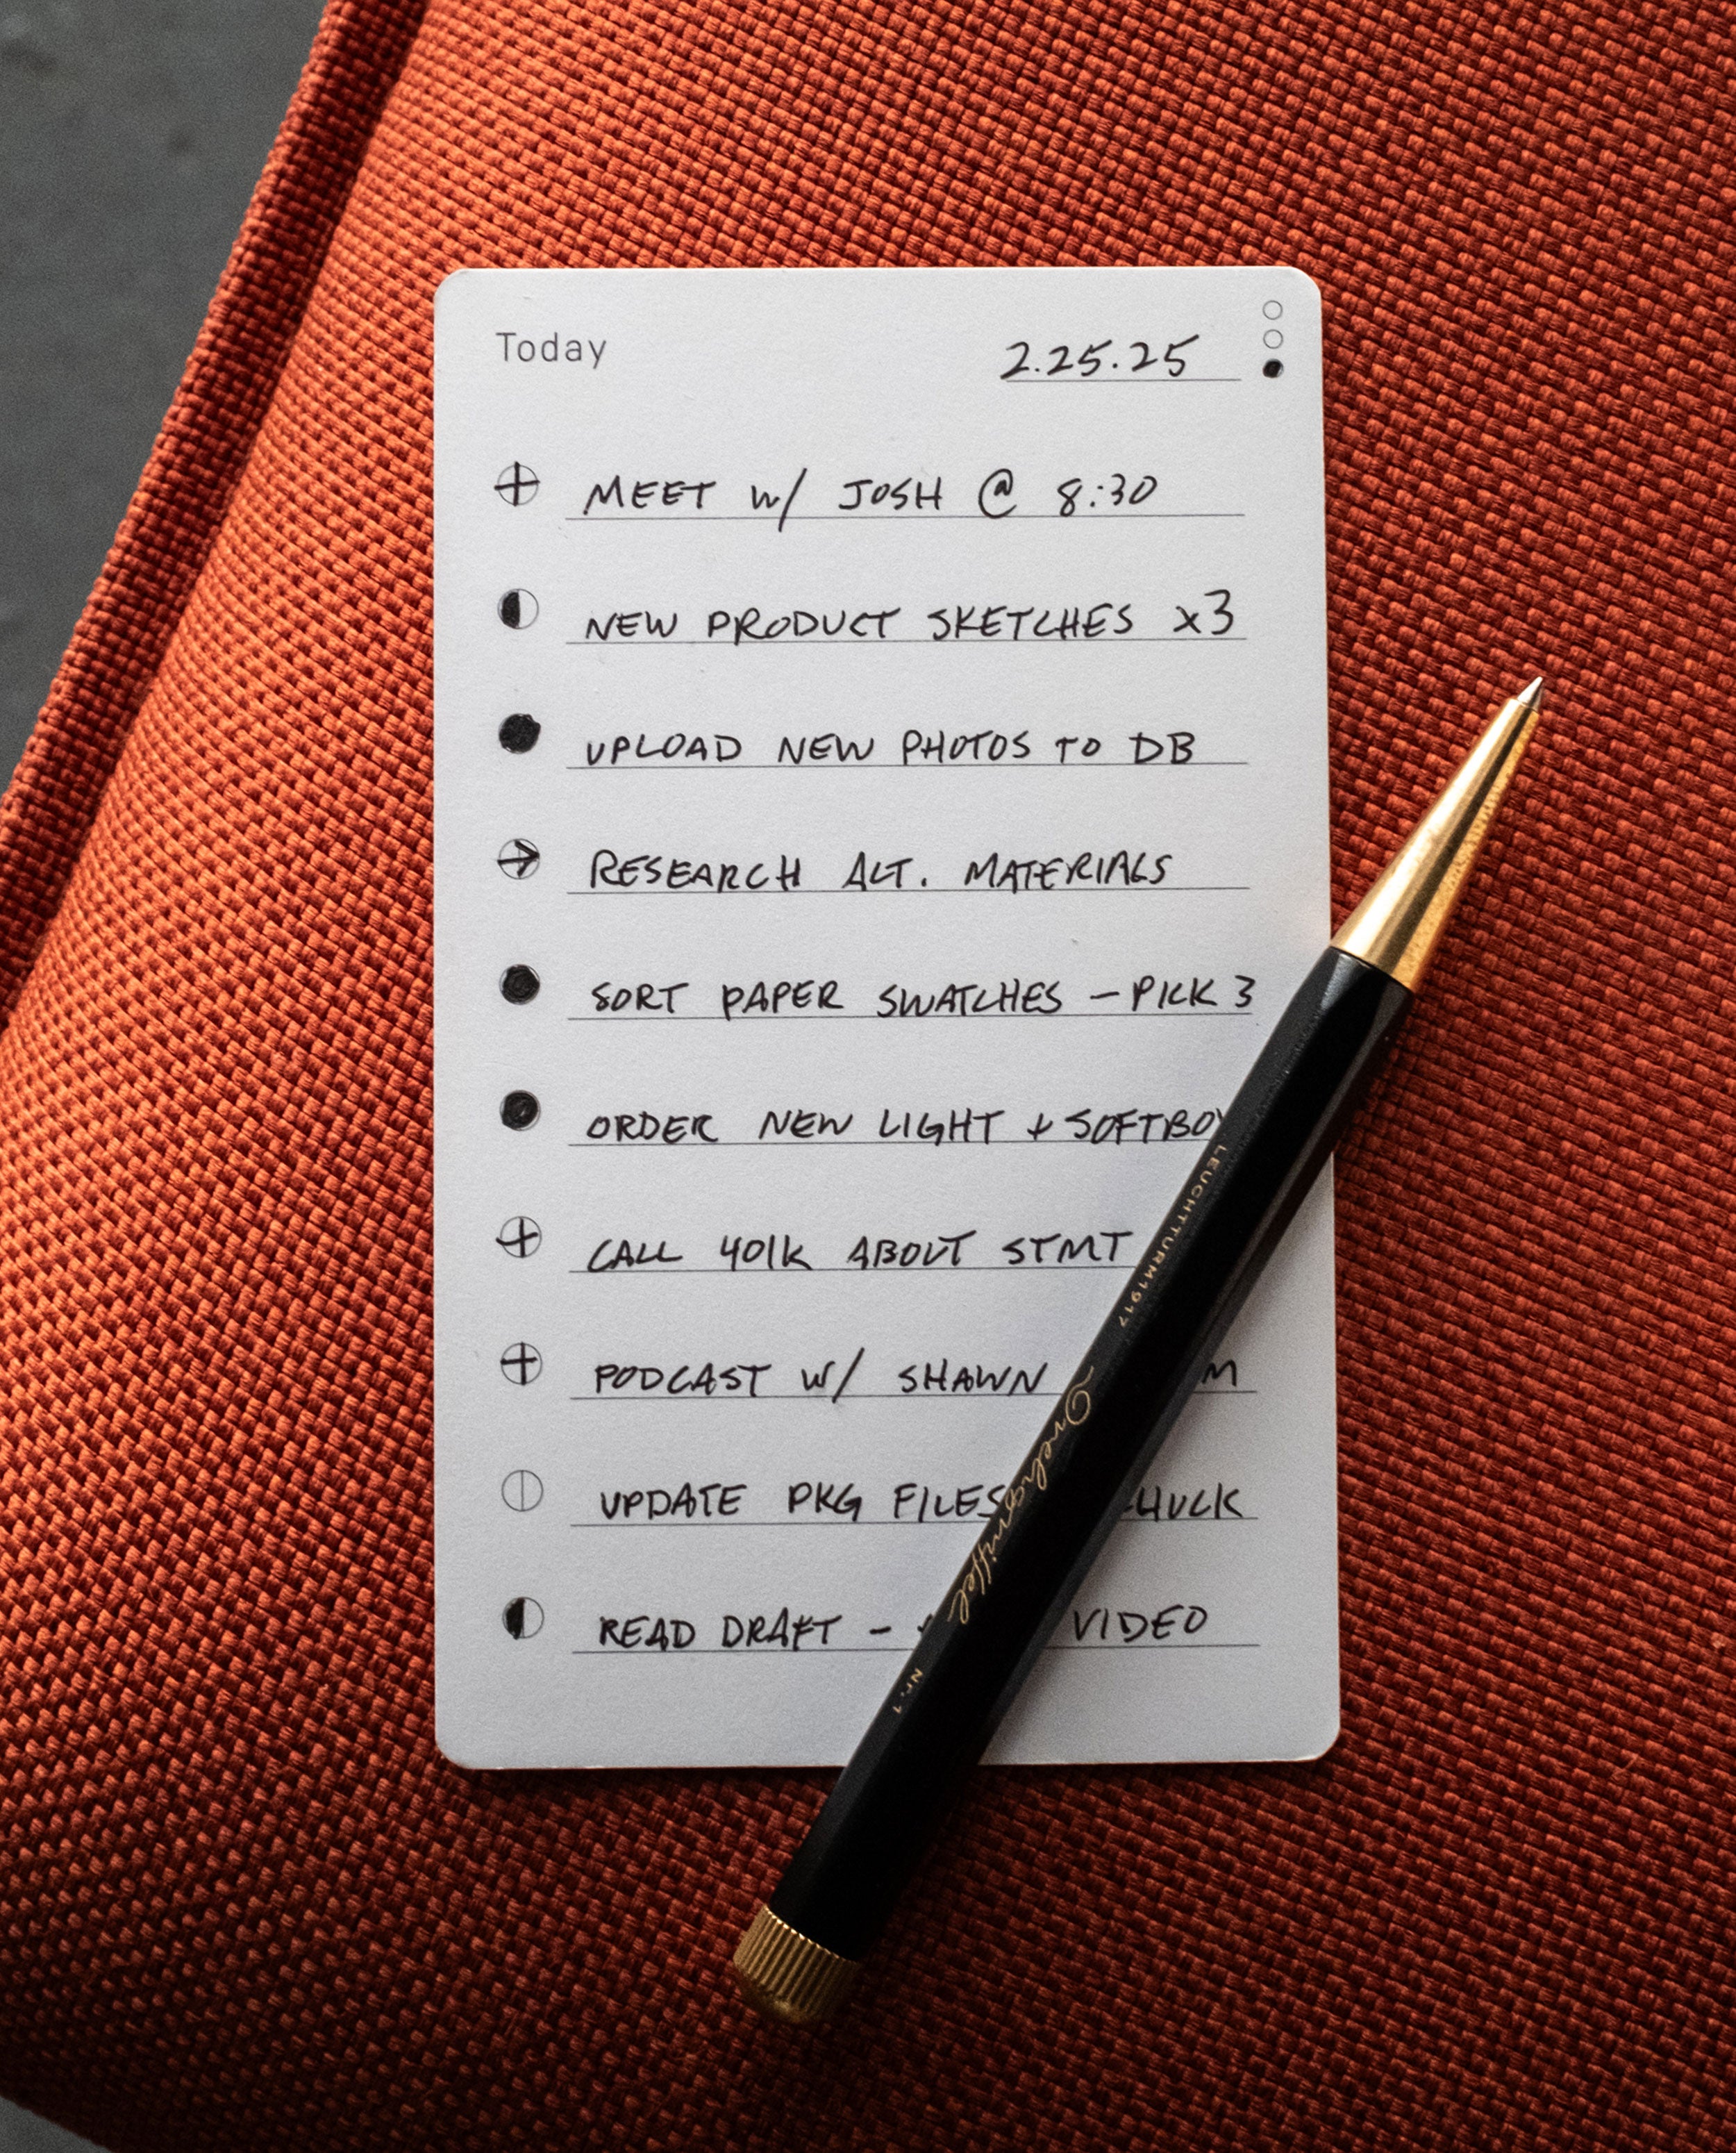 Today
2.25.25
MEET W/ JOSH @ 8:30
NEW PRODUCT SKETCHES x3
UPLOAD NEW PHOTOS TO DB
RESEARCH ALT. MATERIALS
SORT PAPER SWATCHES - PICK 3
ORDER NEW LIGHT +
CALL 401K ABOUT STMT
PODCAST W/ SHAWN
UPDATE PKG FILES
READ DRAFT - VIDEO
LEUCHTTURM1917
Drehgriffel
Nr. 1